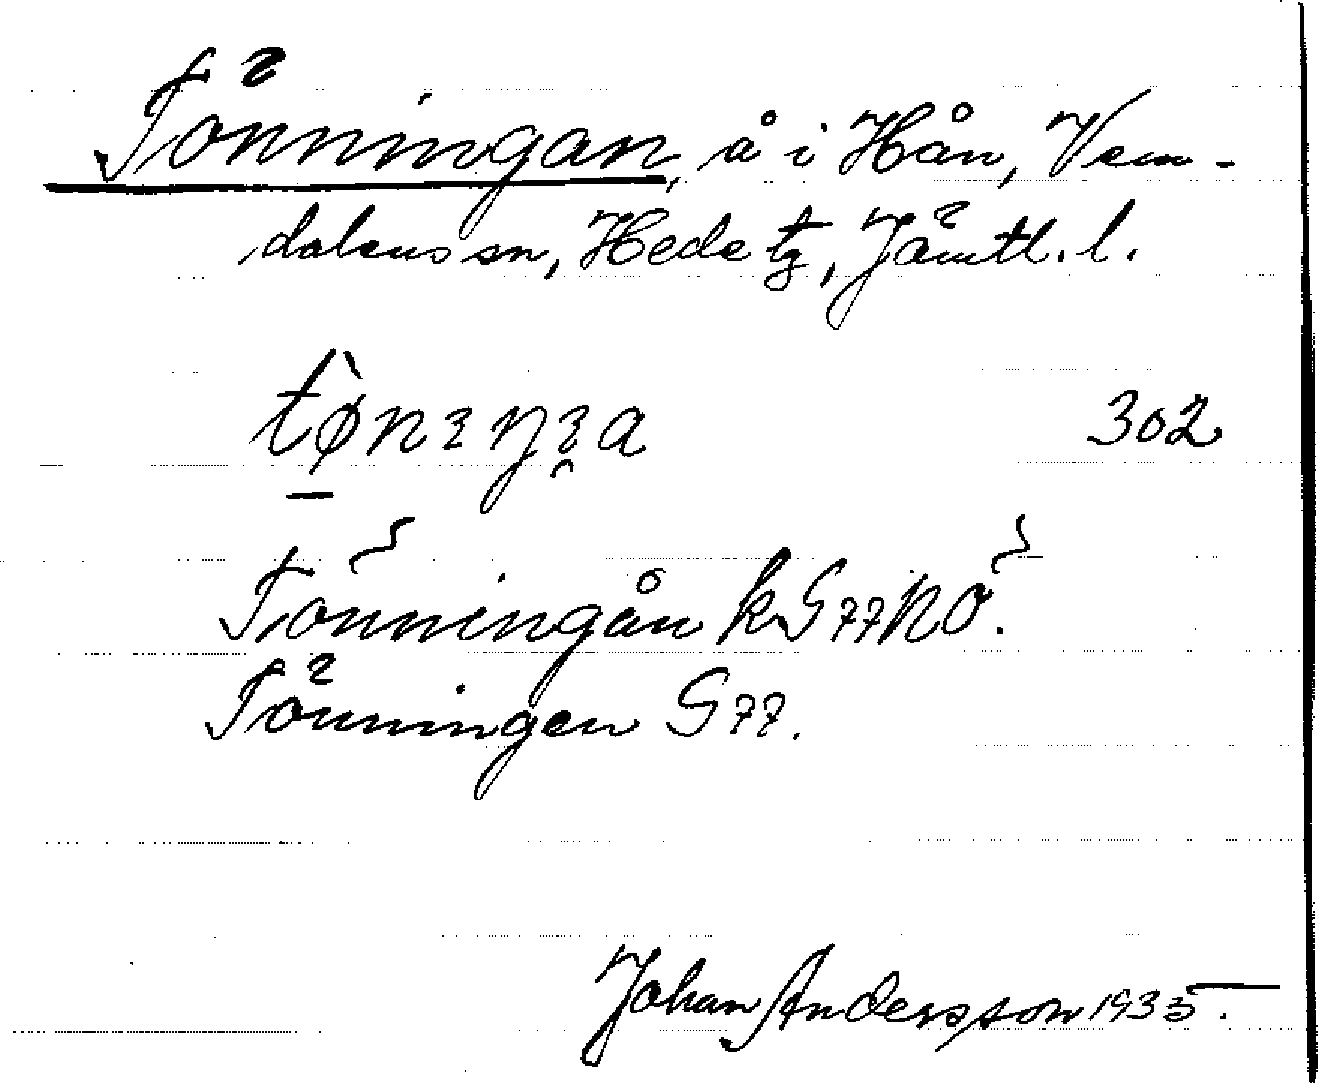 Tönningan, å i Hån, Vem-
dalens sn, Hede tg, Jämtl. l.
302
Tönningån k G77 NÖ.
Tönningen G77.
Johan Andersson 1935.